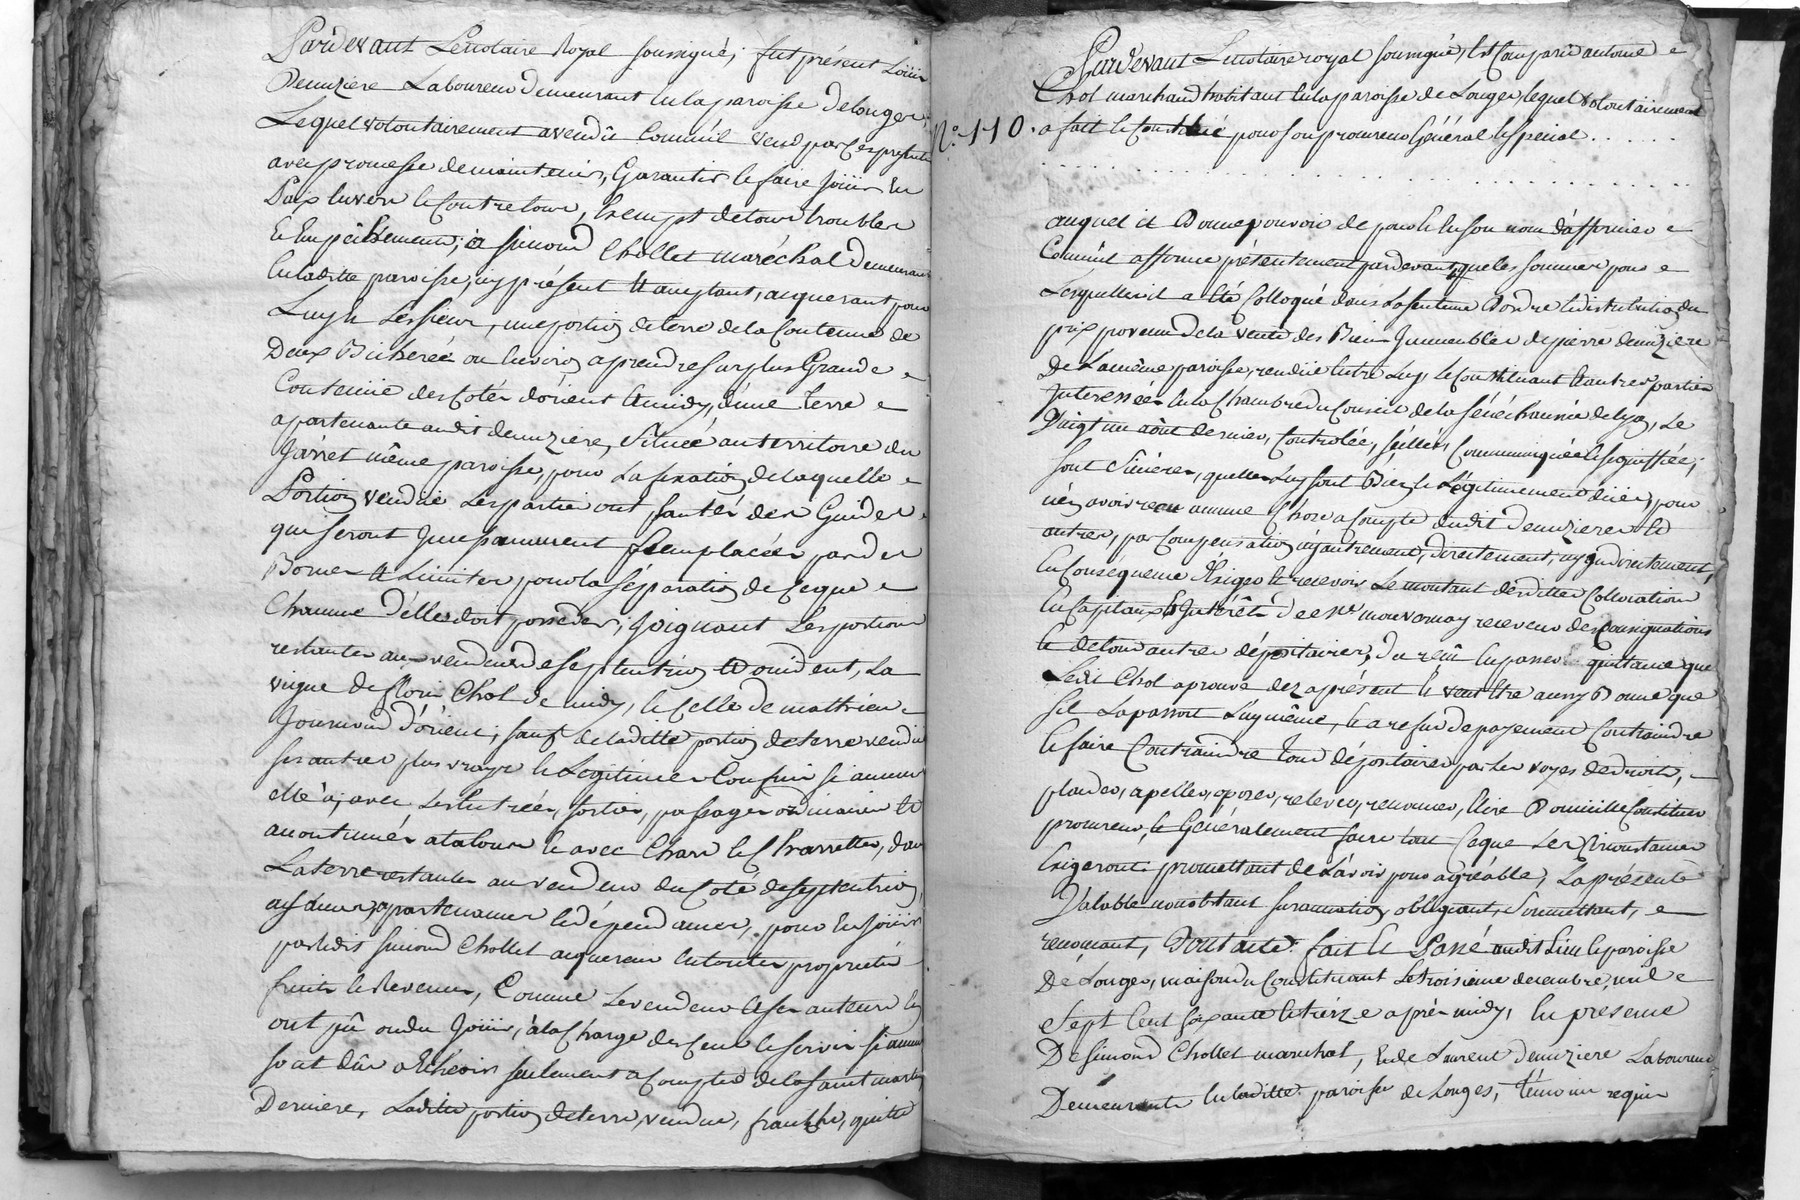 Pardevant Le notaire Royal soussigné, fut présent Loüis
Demziere Laboureur demeurant en la paroisse de longes,
Lequel volontairement a vendu Comme il vend par Ces presentes
avec promesse de maintenir, Garantir & faire joüir En
Paix Envers & Contre tous, Exempt de tous troubles
& Empêchements, à simond Chollet maréchal demeurant
En laditte paroisse, icy présent & acceptant, acquerant pour
Luy & Les siens, une portion de terre de la Contenue de
Deux Bicherée ou Environ a prendre sur plus Grande
Contenüe des Cotés d'orient & midy, d'une terre
apartenante audit demziere, Scituée au territoire du
Jarret même paroisse, pour La fixation de laquelle
Portion vendüe Les parties ont planté des Guides
qui seront Incessamment remplacées par des
Bornes & Limites pour la séparation de Ce que
Chacune d'elles doit posseder, Joignant Les portions
restantes au vendeur de septentrion & occident, La
vigne de fleurie Chol de midy, & Celle de mathieu
Journoud d'orient, sauf de laditte portion de terre vendüe
ses autres plus vrays & Legitimes Confins si aucuns
elle à, avec Les Entrées, sorties, passages ordinaires &
accoutumés a talons & avec Chars & Charrettes, dans
La terre restante au vendeur du Coté de septentrion,
aisances, apartenances & dépendances, pour En joüir
par ledit simond Chollet acquereur En toutes proprietés
fruits & Revenus, Comme Le vendeur & ses auteurs En
ont jüi ou du Joüir, à la Charge des Cens & servis si aucuns
sont dûs a Echeoir seulement a Compter de la saint martin
Derniere, Laditte portion de terre vendue, franche, quitte
Pardevant Le notaire royal soussigné, Est Comparu antoine
Chol marchand habitant En la paroisse de Longes, lequel volontairement
N.o 110. a fait & Constitué pour son procureur Général & spécial . . . . . .
. . . . . . . . . . . . . . . . . . . .
auquel il Donne pouvoir de pour & En son nom d'affirmer
Comme il affirme présentement pardevant que les sommes pour
Lesquelles il a Eté Colloqué dans La sentence D'ordre & distribution du
prix provenu de la vente des Biens Immeubles de pierre demziere
de La même paroisse, rendüe Entre Luy, le Constituant & autres parties
Interessées En la Chambre du Conseil de la sénéchaussée de Lyon, Le
Vingt un aôut dernier, Controlée, scellée, Communiquée & signiffiée,
sont sincères, qu'elles Luy sont Bien & Légitimement düies, pour
n'en avoir reçu aucune Chose a Compte dudit demziere &
autres, par Compensation ny autrement, directement, ny indirectement,
En Conséquence Exiger & recevoir Le montant desdittes Collocations
En Capitaux & Intérêts de Mr. mouvernay receveur des Consignations
& de tous autres dépositaires, du reçû En passer quittance que
Ledit Chol aprouve dez aprésent & veut Etre aussy Bonne que
s'il La passoit Luy même, & a refus de payement Contraindre
& faire Contraindre tous dépositaires par Les voyes de droit,
plaider, apeller, oposer, relever, renoncer, Elire Domicille Constituer
procureur, & Généralement faire tout Ce que Les Circonstances
Exigeront promettant de L'avoir pour agréable, La présente
Valable nonobstant surannation, obligeant, Soumettant,
renonçant, Dont acte. fait & Passé audit Lieu & paroisse
De Longes, maison du Constituant Le troisieme decembre, mil
Sept Cent soixante & treize après midy, En presence
De simond Chollet marechal, & de Laurent demziere Laboureur
Demeurants En laditte paroisse de Longes, témoins requis